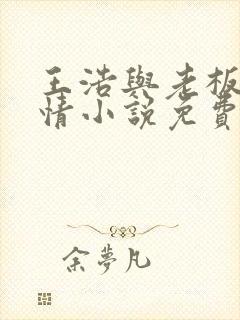 王浩與老板
情小說免費
余夢凡